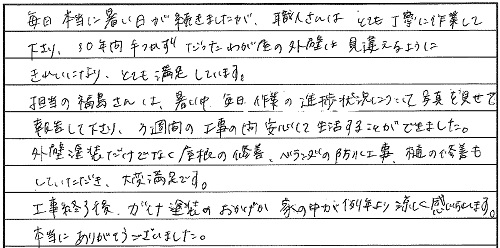 毎日本当に暑い日が続きましたが、職人さんは とても丁寧に作業して
下さり、30年間手つかずだったわが家の外壁は見違えるように
きれいになり、とても満足しています。
担当の福島さんは、暑い中 毎日 作業の進捗状況について写真を見せて
報告して下さり、3週間の工事の間安心して生活することができました。
外壁塗装だけでなく屋根の修善、ベランダの防水工事、樋の修善も
していただき、大変満足です。
工事終了後、ガイナ塗装のおかげか 家の中が例年より涼しく感じられます。
本当にありがとうございました。